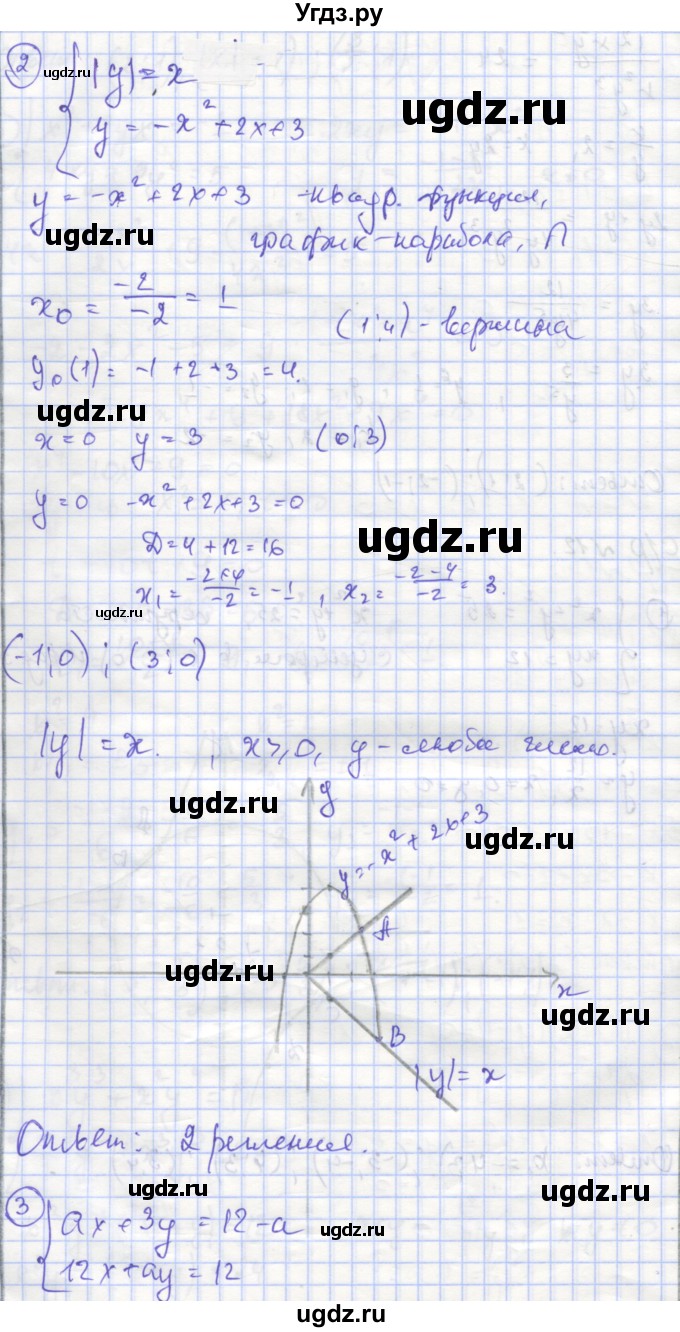 Угдз.ру
②
|y| = x
y = -x² + 2x + 3
ugdz.ru
ugdz.ru
y = -x² + 2x + 3 - квадр. функция,
график - парабола, ∩
ugdz.ru
x₀ = -2/-2 = 1
(1; 4) - вершина
y₀(1) = -1 + 2 + 3 = 4.
ugdz.ru
ugdz.ru
x = 0 y = 3 (0; 3)
y = 0 -x² + 2x + 3 = 0
ugdz.ru
D = 4 + 12 = 16
x₁ = -2+4/-2 = -1 , x₂ = -2-4/-2 = 3.
ugdz.ru
(-1; 0) ; (3; 0)
|y| = x. , x ⩾ 0, y - любое число.
ugdz.ru
y
y = -x² + 2x + 3
ugdz.ru
A
ugdz.ru
x
ugdz.ru
B
|y| = x
Ответ: 2 решения.
ugdz.ru
ugdz.ru
③
ax + 3y = 12 - a
ugdz.ru
12x + ay = 12
ugdz.ru